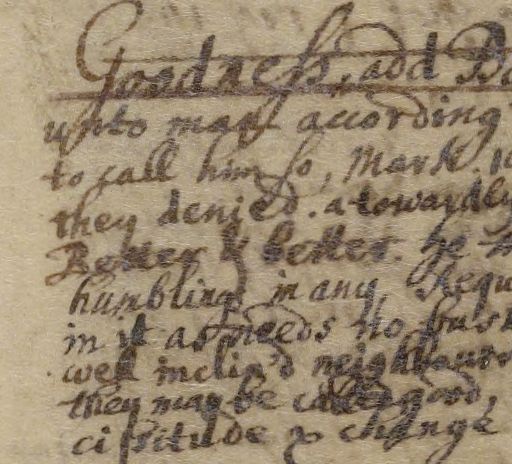 Goodness, add B
unto man according
to call him so, Mark. 10
they denied. a towardly
Better & better. he
humbling in any, Requ
in it as needs no furt
well inclin'd neighbours
they may be called good,
cissitude & change